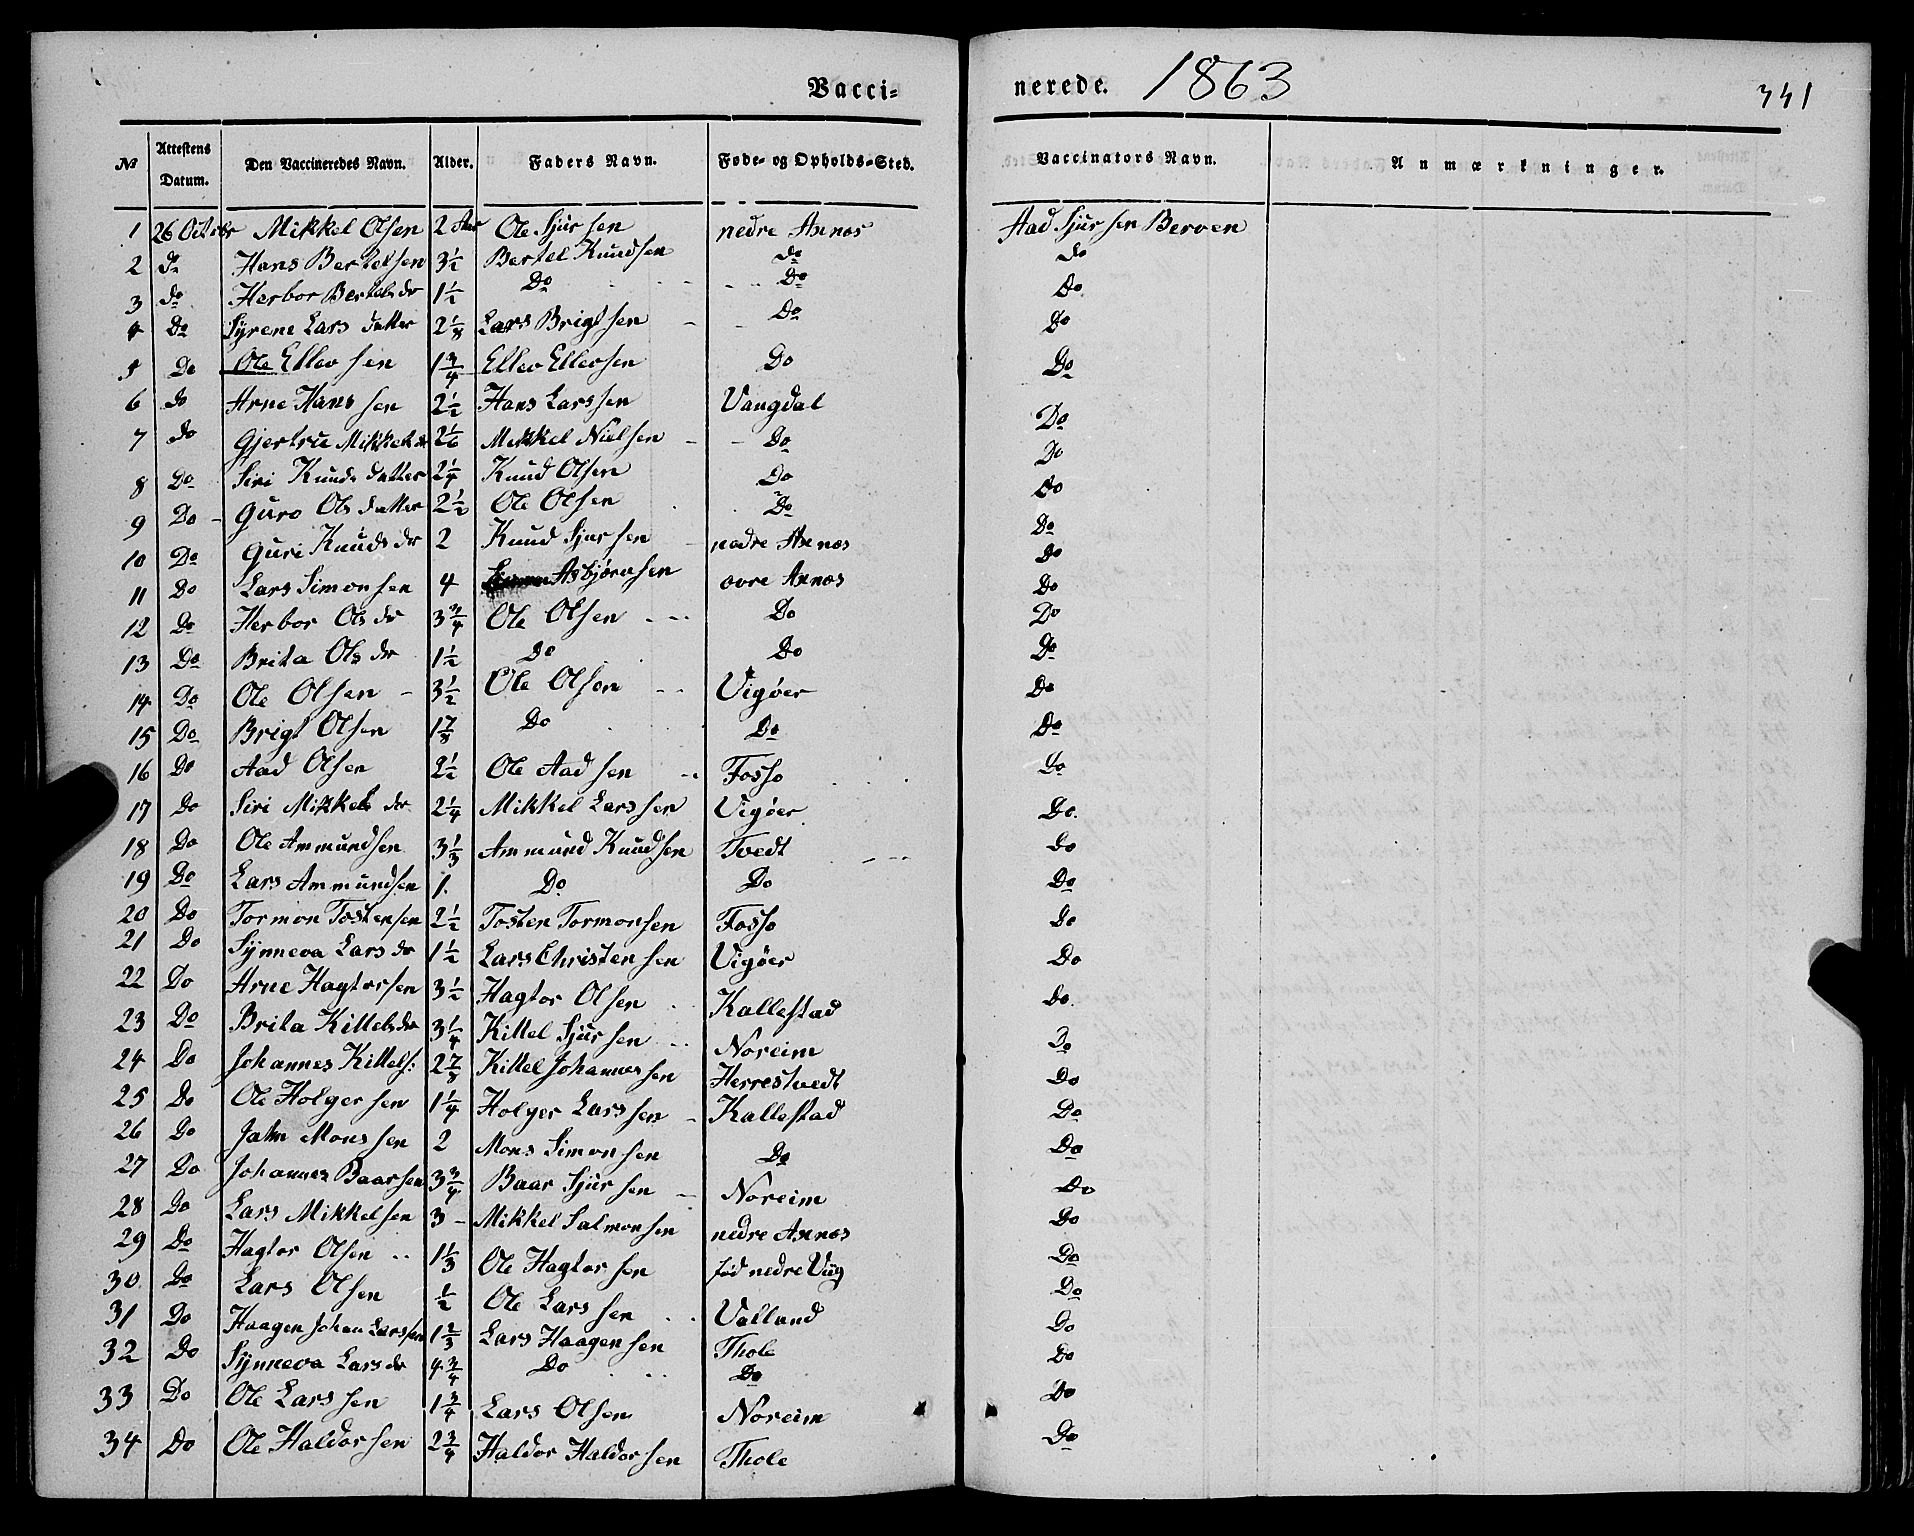 Vacci- nerede. 1863 341
№ Attestens Datum. Den Vaccineredes Navn. Alder. Faders Navn. Føde- og Opholds-Sted. Vaccinators Navn. Anmærkninger.
1 26 Octobr Mikkel Olsen 2 Aar Ole Sjursen nedre Axnæs Aad Sjursen Berven
2 do Hans Bertelsen 3½ Bertel Knudsen do do
3 do Herbor Bertelsdr 1½ Do Do Do
4 Do Syrene Larsdatter 2⅛ Lars Brigtsen Do Do
5 Do Ole Ellevsen 1¾ Ellev Ellevsen Do Do
6 do Arne Hansen 2½ Hans Larssen Vangdal Do
7 do Gjertrue Mikkelsdr 2⅙ Mikkel Nielsen Do Do
8 Do Siri Knudsdatter 2¼ Knud Olsen Do Do
9 Do Guro Olsdatter 2½ Ole Olsen Do Do
10 Do Guri Knudsdr 2 Knud Sjursen nedre Axnæs Do
11 Do Lars Simonsen 4 Simon Asbjørnsen øvre Axnæs Do
12 Do Herbor Olsdr 3¾ Ole Olsen Do Do
13 Do Brita Olsdr 1½ Do Do Do
14 Do Ole Olsen 3½ Ole Olsen Vigøer Do
15 Do Brigt Olsen 1⅞ Do Do Do
16 Do Aad Olsen 2½ Ole Aadsen Fosso Do
17 Do Siri Mikkelsdr 2¼ Mikkel Larssen Vigøer Do.
18 Do Ole Ammundsen 3⅓ Ammund Knudsen Tvedt Do
19 Do Lars Ammundsen 1. Do Do Do
20 Do Tormon Tostensen 2½ Tosten Tormonsen Fosso Do
21 Do Synneva Larsdr 1½ Lars Christensen Vigøer Do
22 Do Arne Hagtorsen 3½ Hagtor Olsen Kallestad Do.
23 Do Brita Kittelsdr 3¼ Kittel Sjursen Noreim Do
24 Do Johannes Kittels: 2⅞ Kittel Johannessen Herrestvedt Do
25 Do Ole Holgersen 1¼ Holger Larssen Kallestad Do
26 Do Jahn Monssen 2 Mons Simonsen Do Do
27 Do Johannes Baarsen 3¾ Baar Sjursen Noreim Do
28 Do Lars Mikkelsen 3 Mikkel Salmonsen nedre Axnæs Do
29 Do Hagtor Olsen 1⅓ Ole Hagtorsen fød nedre Vig Do
30 Do Lars Olsen ½ Ole Larssen Valland Do
31 Do Haagen Johan Larssen 1⅔ Lars Haagensen Thole Do
32 Do Synneva Larsdr 4¾ Do Do Do
33 Do Ole Larssen 1¾ Lars Olsen Noreim Do
34 Do Ole Haldorsen 2¾ Haldor Haldorsen Thole Do